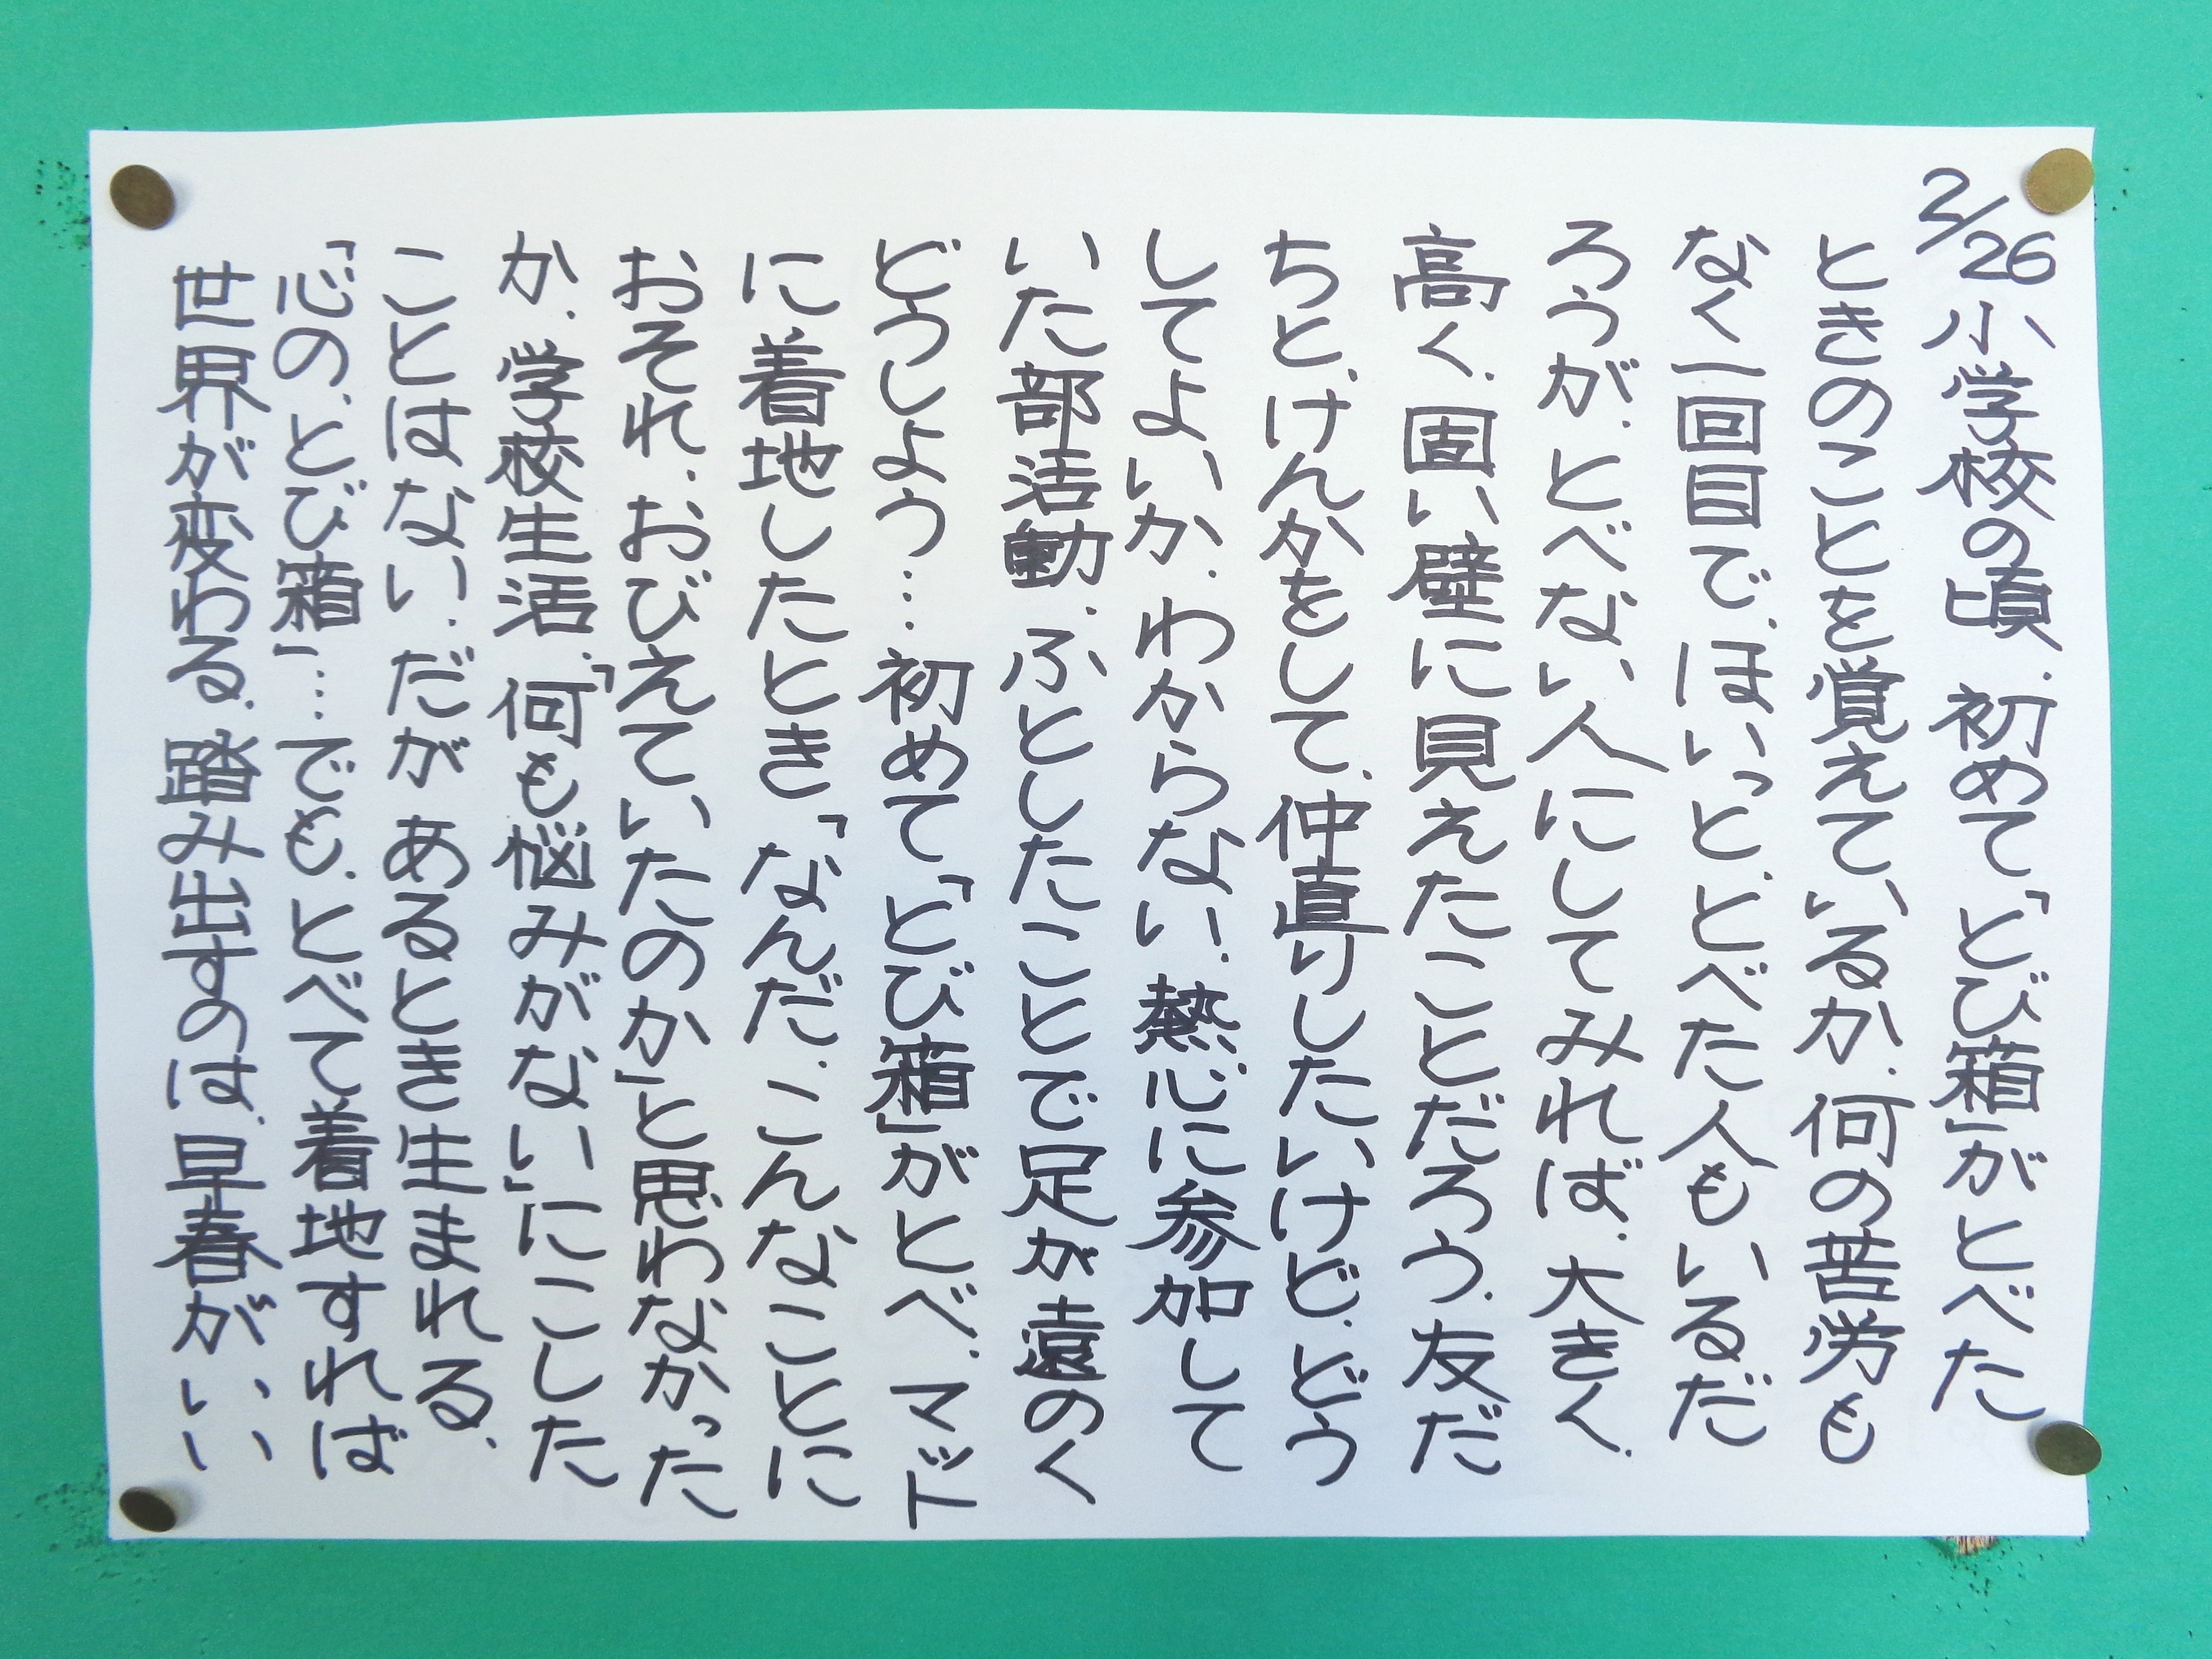 2/26 小学校の頃、初めて、「とび箱」がとべた
ときのことを覚えているか、何の苦労も
なく一回目で、ほいっと、とべた人もいるだ
ろうが、とべない人にしてみれば、大きく、
高く、固い壁に見えたことだろう、友だ
ちと、けんかをして、仲直りしたいけど、どう
してよいか、わからない、熱心に参加して
いた部活動、ふとしたことで足が遠のく
どうしよう…初めて、「とび箱」がとべ、マット
に着地したとき、「なんだ、こんなことに
おそれ、おびえていたのか」と思わなかった
か、学校生活、「何も悩みがない」にこした
ことはない、だが あるとき生まれる、
「心の、とび箱」…でも、とべて着地すれば
世界が変わる、踏み出すのは、早春がいい